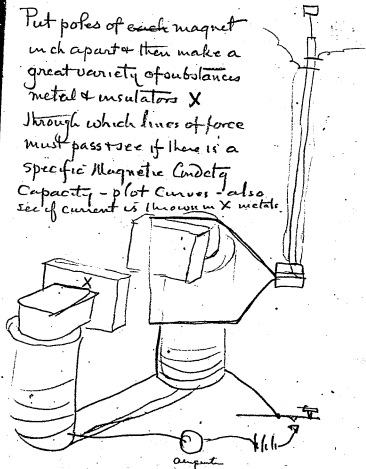 Put poles of each magnet
inch apart & then make a
great variety of substances
metal & insulators X
through which lines of force
must pass & see if there is a
specific Magnetic Condctg
Capacity - plot Curves - also
see if current is thrown in X metals.
X